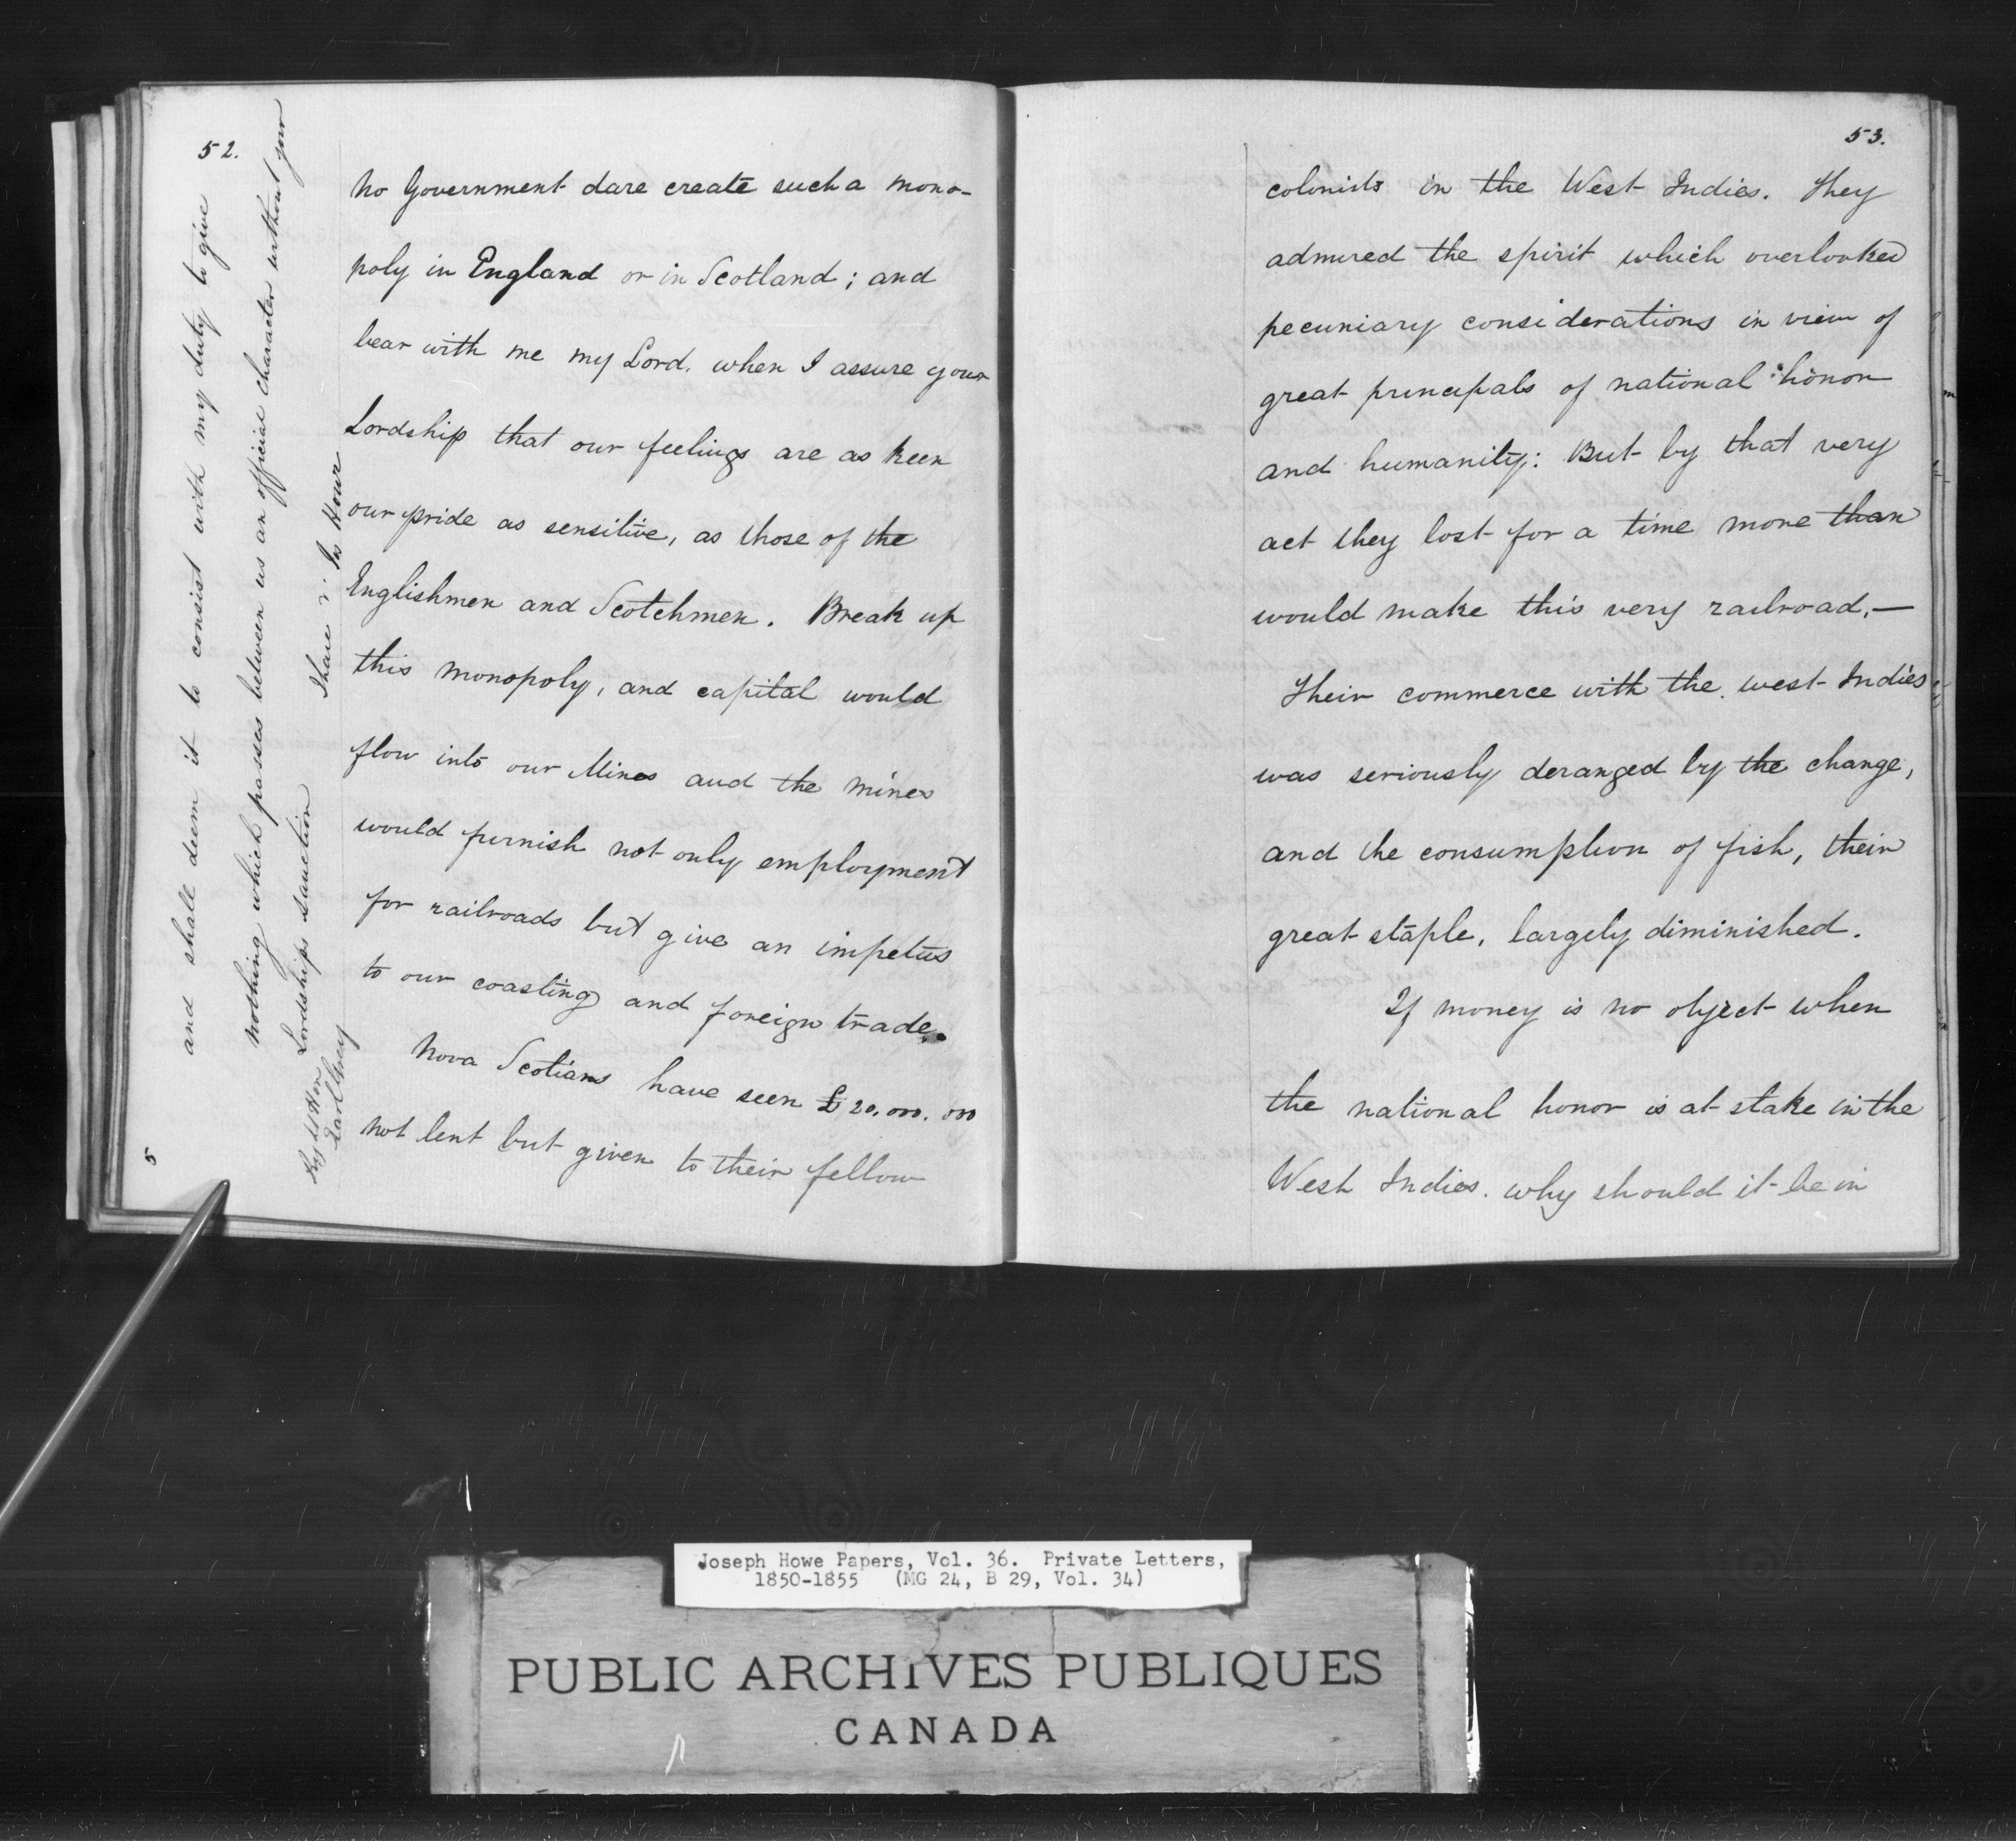 52.
No Government dare create such a mono-
poly in England or in Scotland; and
bear with me my Lord. when I assure your
Lordship that our feelings are as keen
our pride as sensitive, as those of the
Englishmen and Scotchmen. Break up
this monopoly, and capital would
flow into our Mines and the mines
would furnish not only employment
for railroads but give an impetus
to our coasting and foreign trade.
Nova Scotians have seen £20.000.000
not lent but given to their fellow
and shall deem it to consist with my duty to give
nothing which passes between us an official character without your
Lordships sanction
I have &c Jos Howe
Earl Grey
5
53.
colonists in the West Indies. They
admired the spirit which overlooked
pecuniary considerations in view of
great principals of national honor
and humanity: But by that very
act they lost for a time more than
would make this very railroad,—
Their commerce with the west Indies
was seriously deranged by the change,
and the consumption of fish, their
great staple, largely diminished.
If money is no object when
the national honor is at stake in the
West Indies. why should it be in
Joseph Howe Papers, Vol. 36. Private Letters,
1850-1855 (MG 24, B 29, Vol. 34)
PUBLIC ARCHIVES PUBLIQUES
CANADA